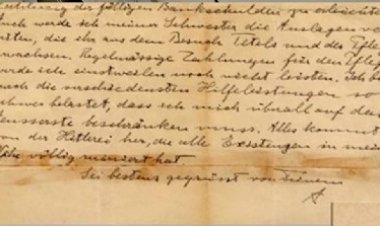 der fälligen Bankschulden zu erleichte
Auch werde ich meiner Schwester die Auslagen ve
üten, die ihr aus dem Besuch Tetels und des Pfle
wachsen. Regelmässige Zahlungen für den Pfle
werde ich einstweilen noch nicht leisten. Ich b
durch die verschiedensten Hilfeleistungen so
schwer belastet, dass ich mich überall auf das
usserste beschränken muss. Alles kommt
von der Hitlerei her, die alle Existenzen in mei
Nähe völlig ruiniert hat.
Sei bestens gegrüsst von Deinem
A